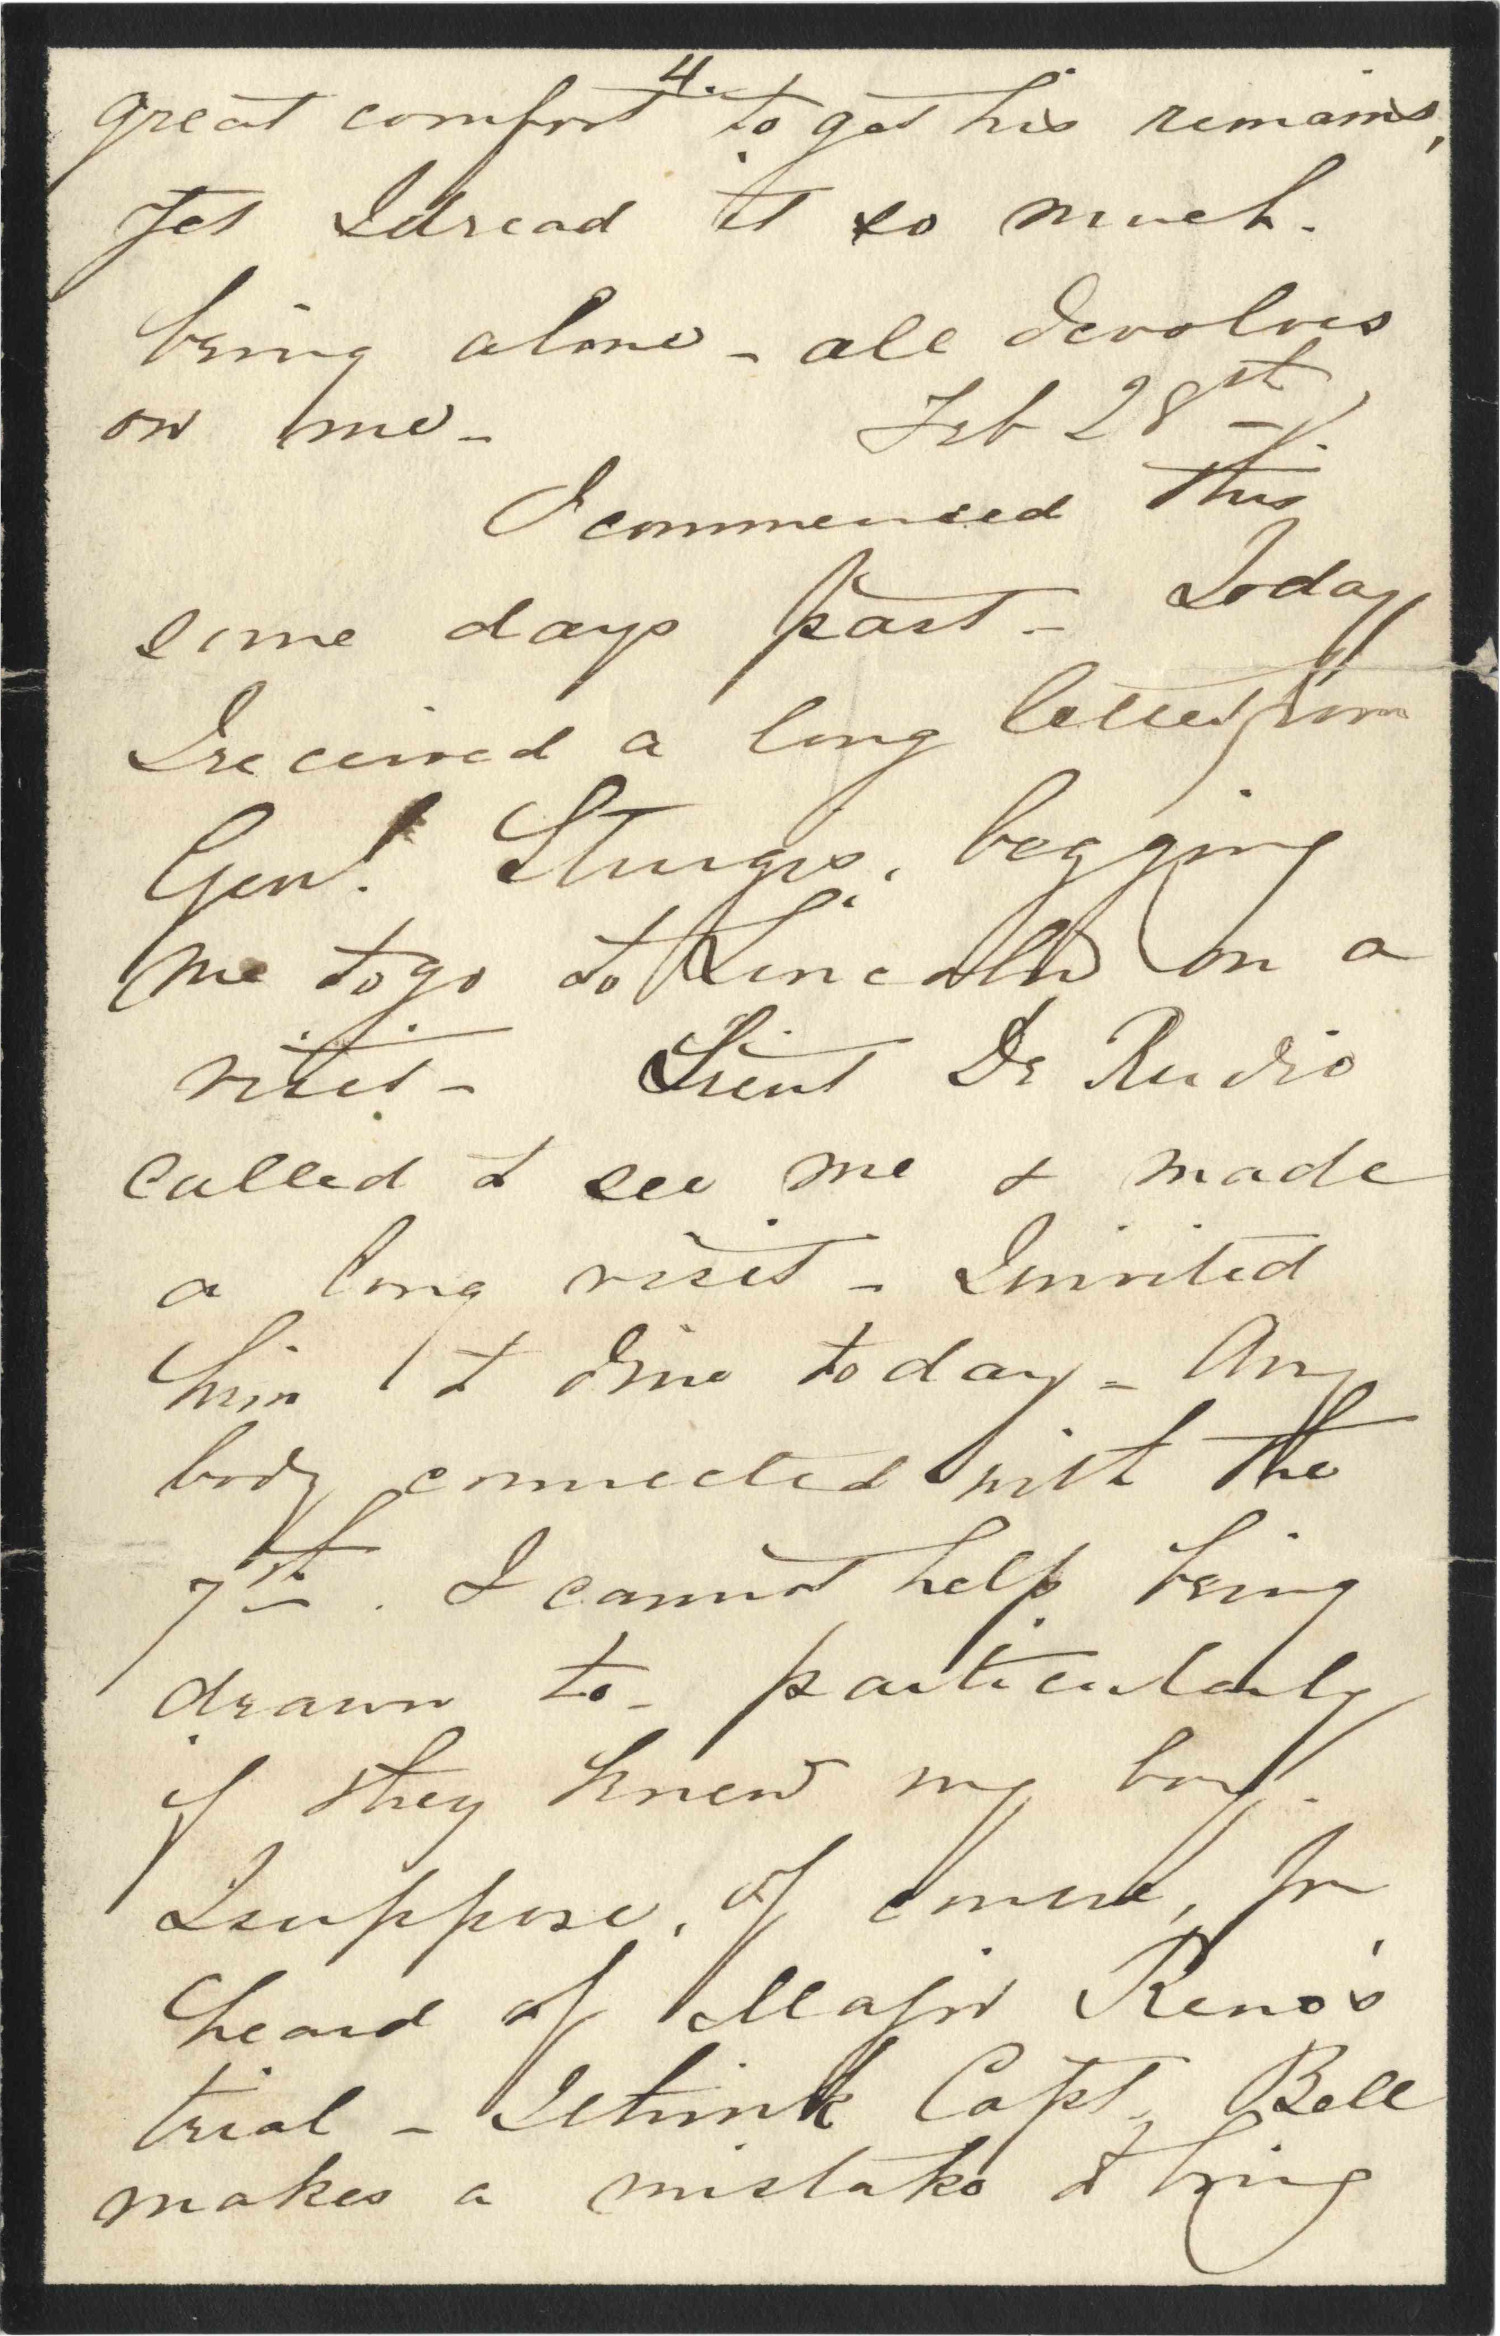 4.
great comfort to get his remains,
yet I dread it so much.
being alone - all devolves
on me - Feb 28th.
I commenced this
some days past - Today
I received a long letter from
Genl. Sturgis, begging
me to go to Lincoln on a
visit - Lieut De Rudio
called to see me & made
a long visit - I invited
him to dine today - Any
body connected with the
7th. I cannot help being
drawn to - particularly
if they knew my boy.
I suppose, of course, you
heard of Major Reno's
trial - I think Capt. Bell
makes a mistake to bring